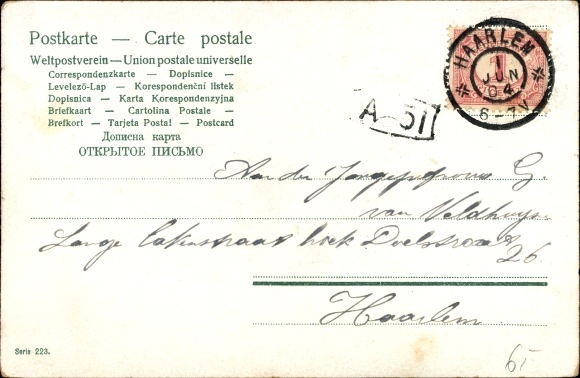 Postkarte — Carte postale
Weltpostverein — Union postale universelle
Correspondenzkarte — Dopisnice —
Levelező-Lap — Korespondenční listek
Dopisnica — Karta Korespondenzyjna
Briefkaart — Cartolina Postale —
Brefkort — Tarjeta Postal — Postcard
Дописна карта
ОТКРЫТОЕ ПИСЬМО
HAARLEM
1
JUN
04
6-7V
A 51
Aan de G.
van Veldhuysen
Lange Lakenstraat hoek Doelstraat
26
Haarlem
Serie 223.
65